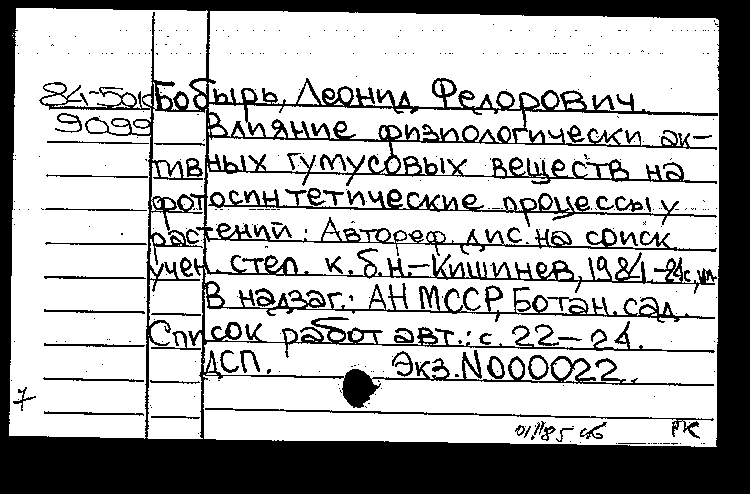 84-5010 Бобырь, Леонид Федорович.
9099 Влияние физиологически ак-
тивных гумусовых веществ на
фотосинтетические процессы у
растений: Автореф. дис. на соиск.
учен. степ. к.б.н.-Кишинев, 1981.-24с, ил.
В надзаг.: АН МССР, Ботан. сад.
Список работ авт.: с. 22-24.
ДСП. Экз. N000022.
РК